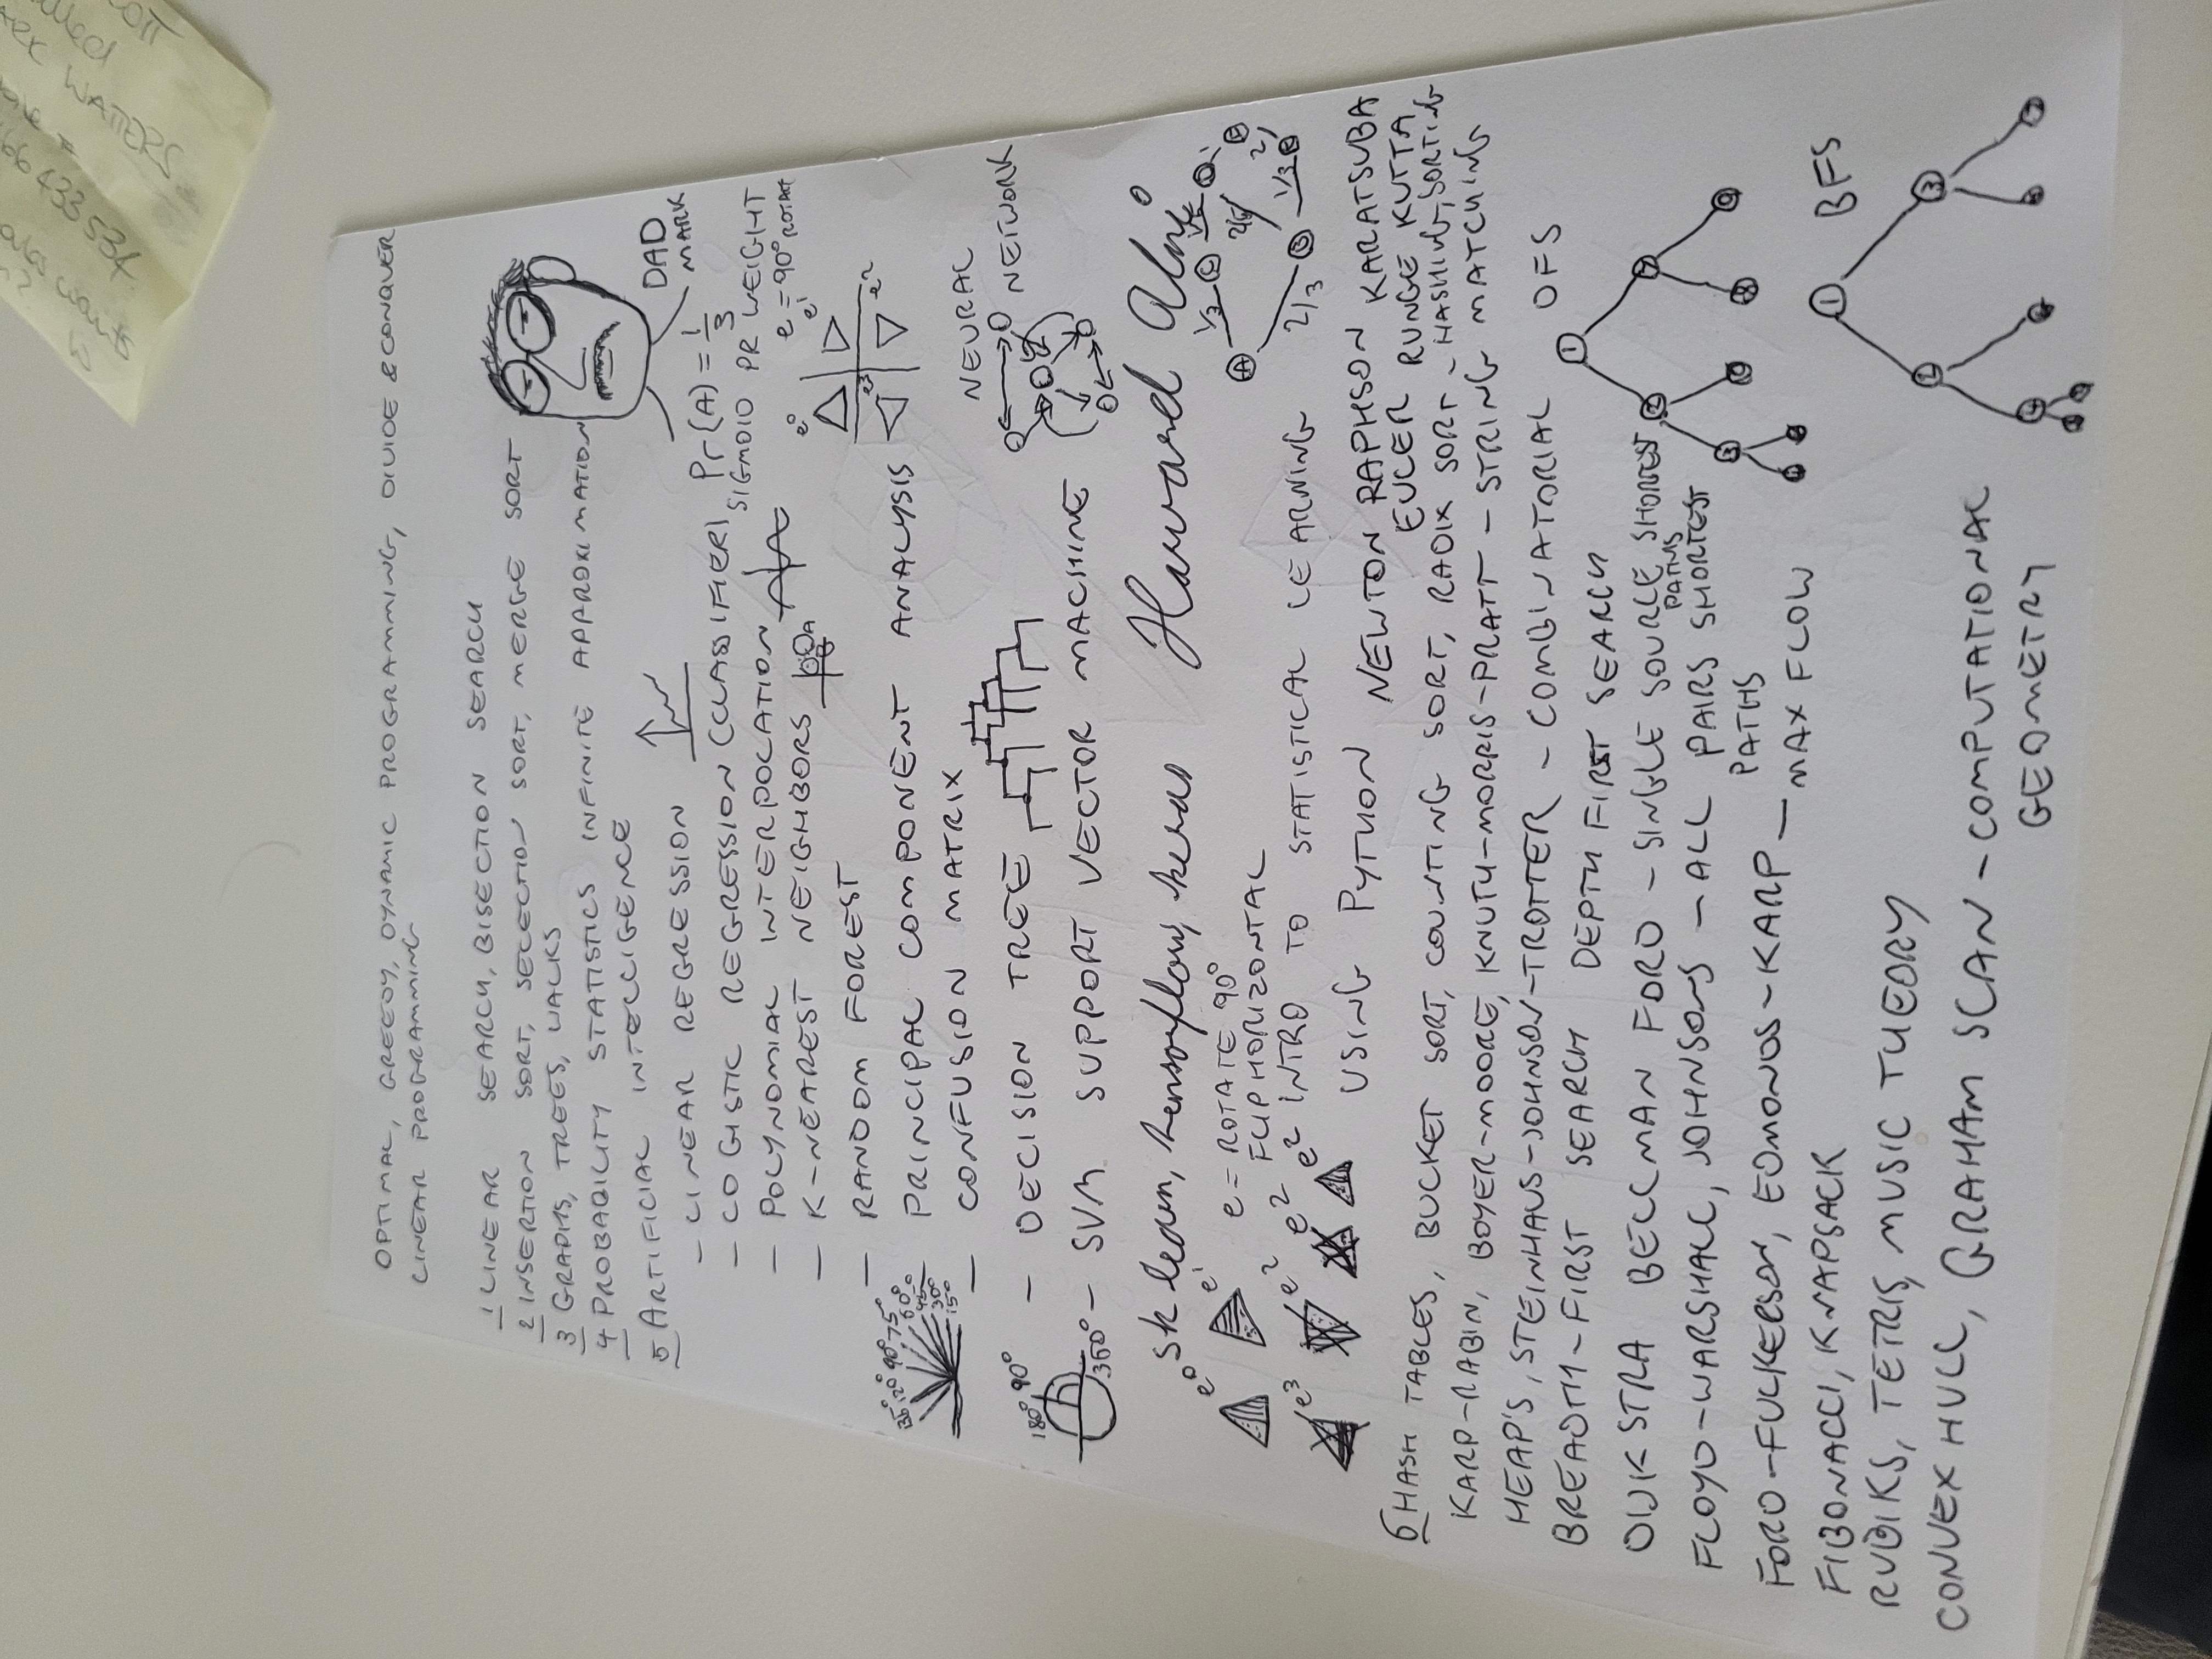 OPTIMAL, GREEDY, DYNAMIC PROGRAMMING, DIVIDE & CONQUER
LINEAR PROGRAMMING
1 LINEAR SEARCH, BISECTION SEARCH
2 INSERTION SORT, SELECTION SORT, MERGE SORT
3 GRAPHS, TREES, WALKS
4 PROBABILITY STATISTICS INFINITE APPROXIMATION
5 ARTIFICIAL INTELLIGENCE
DAD
MARK
- LINEAR REGRESSION
- LOGISTIC REGRESSION (CLASSIFIER)
Pr(A) = 1/3
SIGMOID PR WEIGHT
- POLYNOMIAL INTERPOLATION
e = 90° ROTATE
- K-NEAREST NEIGHBORS
A
B
e⁰ e¹
e³ e²
- RANDOM FOREST
PRINCIPAL COMPONENT ANALYSIS
135° 120° 90° 75°
60°
45°
30°
15°
- CONFUSION MATRIX
NEURAL
NETWORK
- DECISION TREE
180° 90°
360°
- SVM SUPPORT VECTOR MACHINE
sk learn, tensorflow, keras
Harvard Alni
e⁰ e¹
e = ROTATE 90°
FLIP HORIZONTAL
A 1/3 C D 1
2/3 B 1/3 2
e³ e² e² e²
INTRO TO STATISTICAL LEARNING
USING PYTHON
NEWTON RAPHSON KARATSUBA
EULER RUNGE KUTTA
6 HASH TABLES, BUCKET SORT, COUNTING SORT, RADIX SORT - HASHING, SORTING
KARP-RABIN, BOYER-MOORE, KNUTH-MORRIS-PRATT - STRING MATCHING
HEAP'S, STEINHAUS-JOHNSON-TROTTER - COMBINATORIAL
BREADTH-FIRST SEARCH DEPTH FIRST SEARCH
DIJKSTRA BELLMAN FORD - SINGLE SOURCE SHORTEST
PATHS
FLOYD-WARSHALL, JOHNSONS - ALL PAIRS SHORTEST
PATHS
FORD-FULKERSON, EDMONDS-KARP -
MAX FLOW
FIBONACCI, KNAPSACK
RUBIKS, TETRIS, MUSIC THEORY
CONVEX HULL, GRAHAM SCAN - COMPUTATIONAL
GEOMETRY
DFS
1
2 7
3 8 9
BFS
1
2 3
4
WATTERS